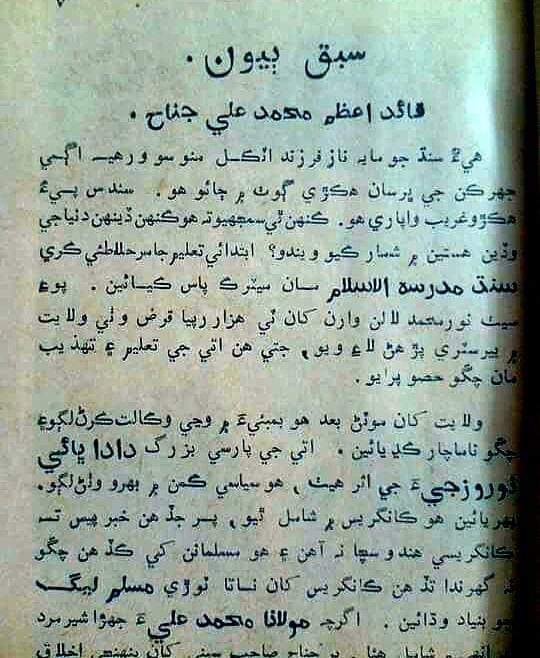 سبق ٻيون.
قائد اعظم محمد علي جناح.
هيءُ سنڌ جو مايه ناز فرزند اٽڪل منو سو ورهيه اڳي
جهرڪن جي ڀرسان هڪڙي ڳوٺ ۾ ڄائو هو. سندس پيءُ
هڪڙو غريب واپاري هو. ڪنهن ٿي سمجهيو ته هو ڪنهن ڏينهن دنيا جي
وڏين هستين ۾ شمار ڪيو ويندو؟ ابتدائي تعليم جا مرحلا طئي ڪري
سنڌ مدرسة الاسلام مان مئٽرڪ پاس ڪيائين. پوءِ
سيٺ نور محمد لالن وارن کان ٽي هزار رپيا قرض وٺي ولايت
۾ بيرسٽري پڙهڻ لاءِ ويو، جتي هن اتي جي تعليم ۽ تهذيب
مان چڱو حصو پرايو.
ولايت کان موٽڻ بعد هو بمبئيءَ ۾ وڃي وڪالت ڪرڻ لڳو ۽
چڱو ناماچار ڪڍيائين. اتي جي پارسي بزرگ دادا ڀائي
نوروزجيءَ جي اثر هيٺ، هو سياسي ڪمن ۾ بهرو وٺڻ لڳو.
پهريائين هو ڪانگريس ۾ شامل ٿيو، پر جڏهن خبر پيس ته
ڪانگريسي هندو سچا نه آهن ۽ هو مسلمانن کي گڏ هن چڱو
نه گهرندا تڏهن ڪانگريس کان ناتا ٽوڙي مسلم ليگ
جو بنياد وڌائين. اگرچه مولانا محمد عليءَ جهڙا شير مرد
شامل هئا، پر جناح صاحب سڀني کان پنهنجي اخلاق